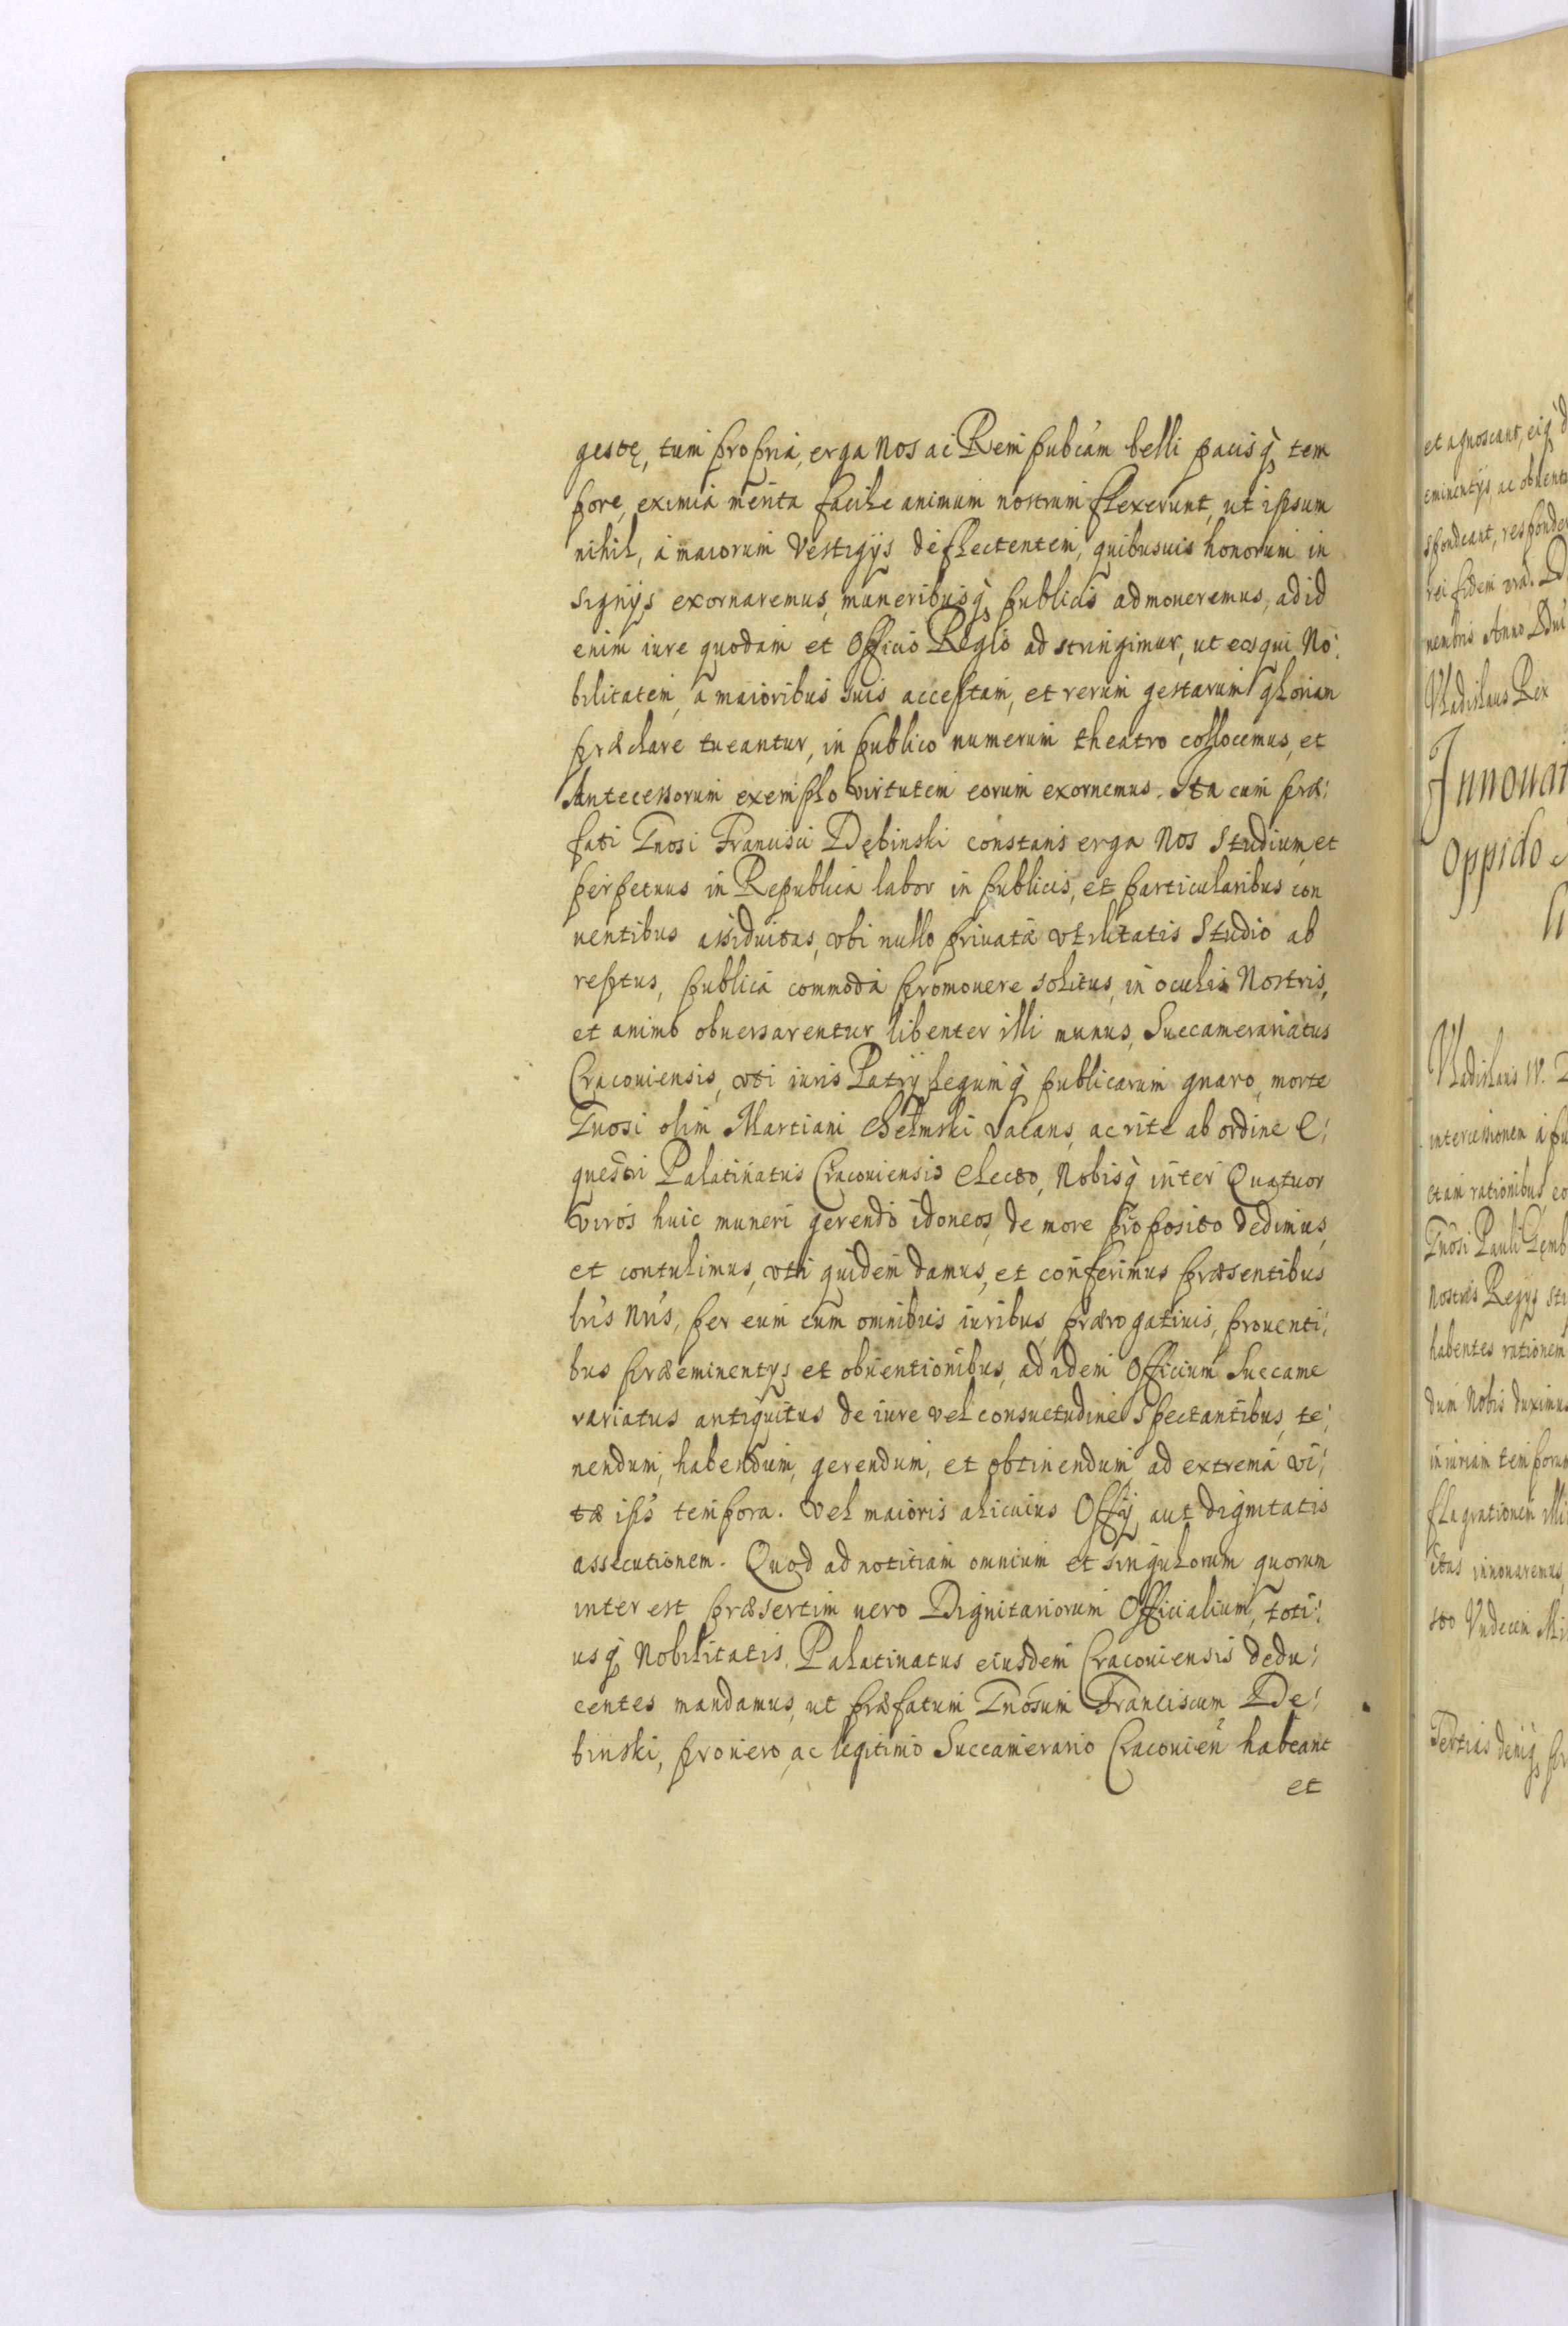 gestę, tum propria, erga Nos ac Rem pubcam belli pacisq̀ tem
pore, eximia merita facile animum nostrum flexerunt, ut ipsum
nihil, a maiorum Vestigÿs deflectentem, quibusuis honorum in
signÿs exornaremus, muneribusq̀ publicis admoueremus, ad id
enim iure quodam et Officio Regio ad stringimur, ut eos qui No:
bilitatem, a maioribus suis acceptam, et rerum gestarum gloriam
præclare tueantur, in publico numerum theatro collocemus, et
Antecessorum exemplo virtutem eorum exornemus. Ita cum præ:
fati Gnosi Francisci Dębinski constans erga Nos Studium, et
perpetuus in Republica labor in publicis, et particularibus con
uentibus assiduitas, vbi nullo priuatæ vtilitatis Studio ab
reptus, publica commoda promouere solitus, in oculis Nostris,
et animo obuersarentur libenter illi munus, Succamerariatus
Cracouiensis, vti iuris Patrÿ legumq̀ publicarum gnaro, morte
Gnosi olim Martiani Chełmski vacans, ac rite ab ordine E:
questri Palatinatus Cracouiensis Electo, Nobisq̀ inter Quatuor
viros huic muneri gerendo idoneos, de more proposito dedimus,
et contulimus, vti quidem damus, et conferimus præsentibus
lris Nris, per eum cum omnibus iuribus, prærogatiuis, prouenti:
bus præeminentÿs et obuentionibus, ad idem Officium Succame
rariatus antiquitus de iure vel consuetudine spectantibus, te:
nendum, habendum, gerendum, et obtinendum ad extrema vi:
tæ ips̀ tempora. Vel maioris alicuius Offÿ, aut dignitatis
assecutionem. Quod ad notitiam omnium et singulorum quorum
inter est præsertim uero Dignitariorum Officialium, toti:
usq̀ Nobilitatis, Palatinatus eiusdem Cracouiensis dedu:
centes mandamus, ut præfatum Gnosum Franciscum De:
binski, pro uero, ac legitimo Succamerario Cracouien habeant
et
et agnoscant, eiq̀
eminentÿs, ac obuent
spondeant, responde
rei fidem
nembris Anno Dni
Vladislaus Rex
Innouat
Oppido
Vladislaus IV.
intercessionem a pu
etiam rationibus, eo
Gnosi Pauli Gemb
Nostris Regÿs
habentes rationem
dum Nobis duximus
iniuriam temporum
flagrationem illi
itas innouaremus,
sto Vndecim
Tertias deniq̀